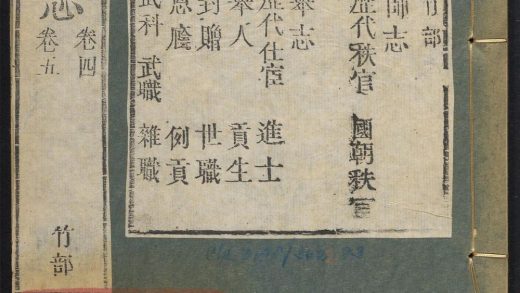 竹部
師志
歷代秩官 國朝秩官
舉志
歷代仕宦 進士
舉人 貢生
封贈 世職
恩廕 例貢
武科 武職 雜職
卷四
卷五
志
竹部